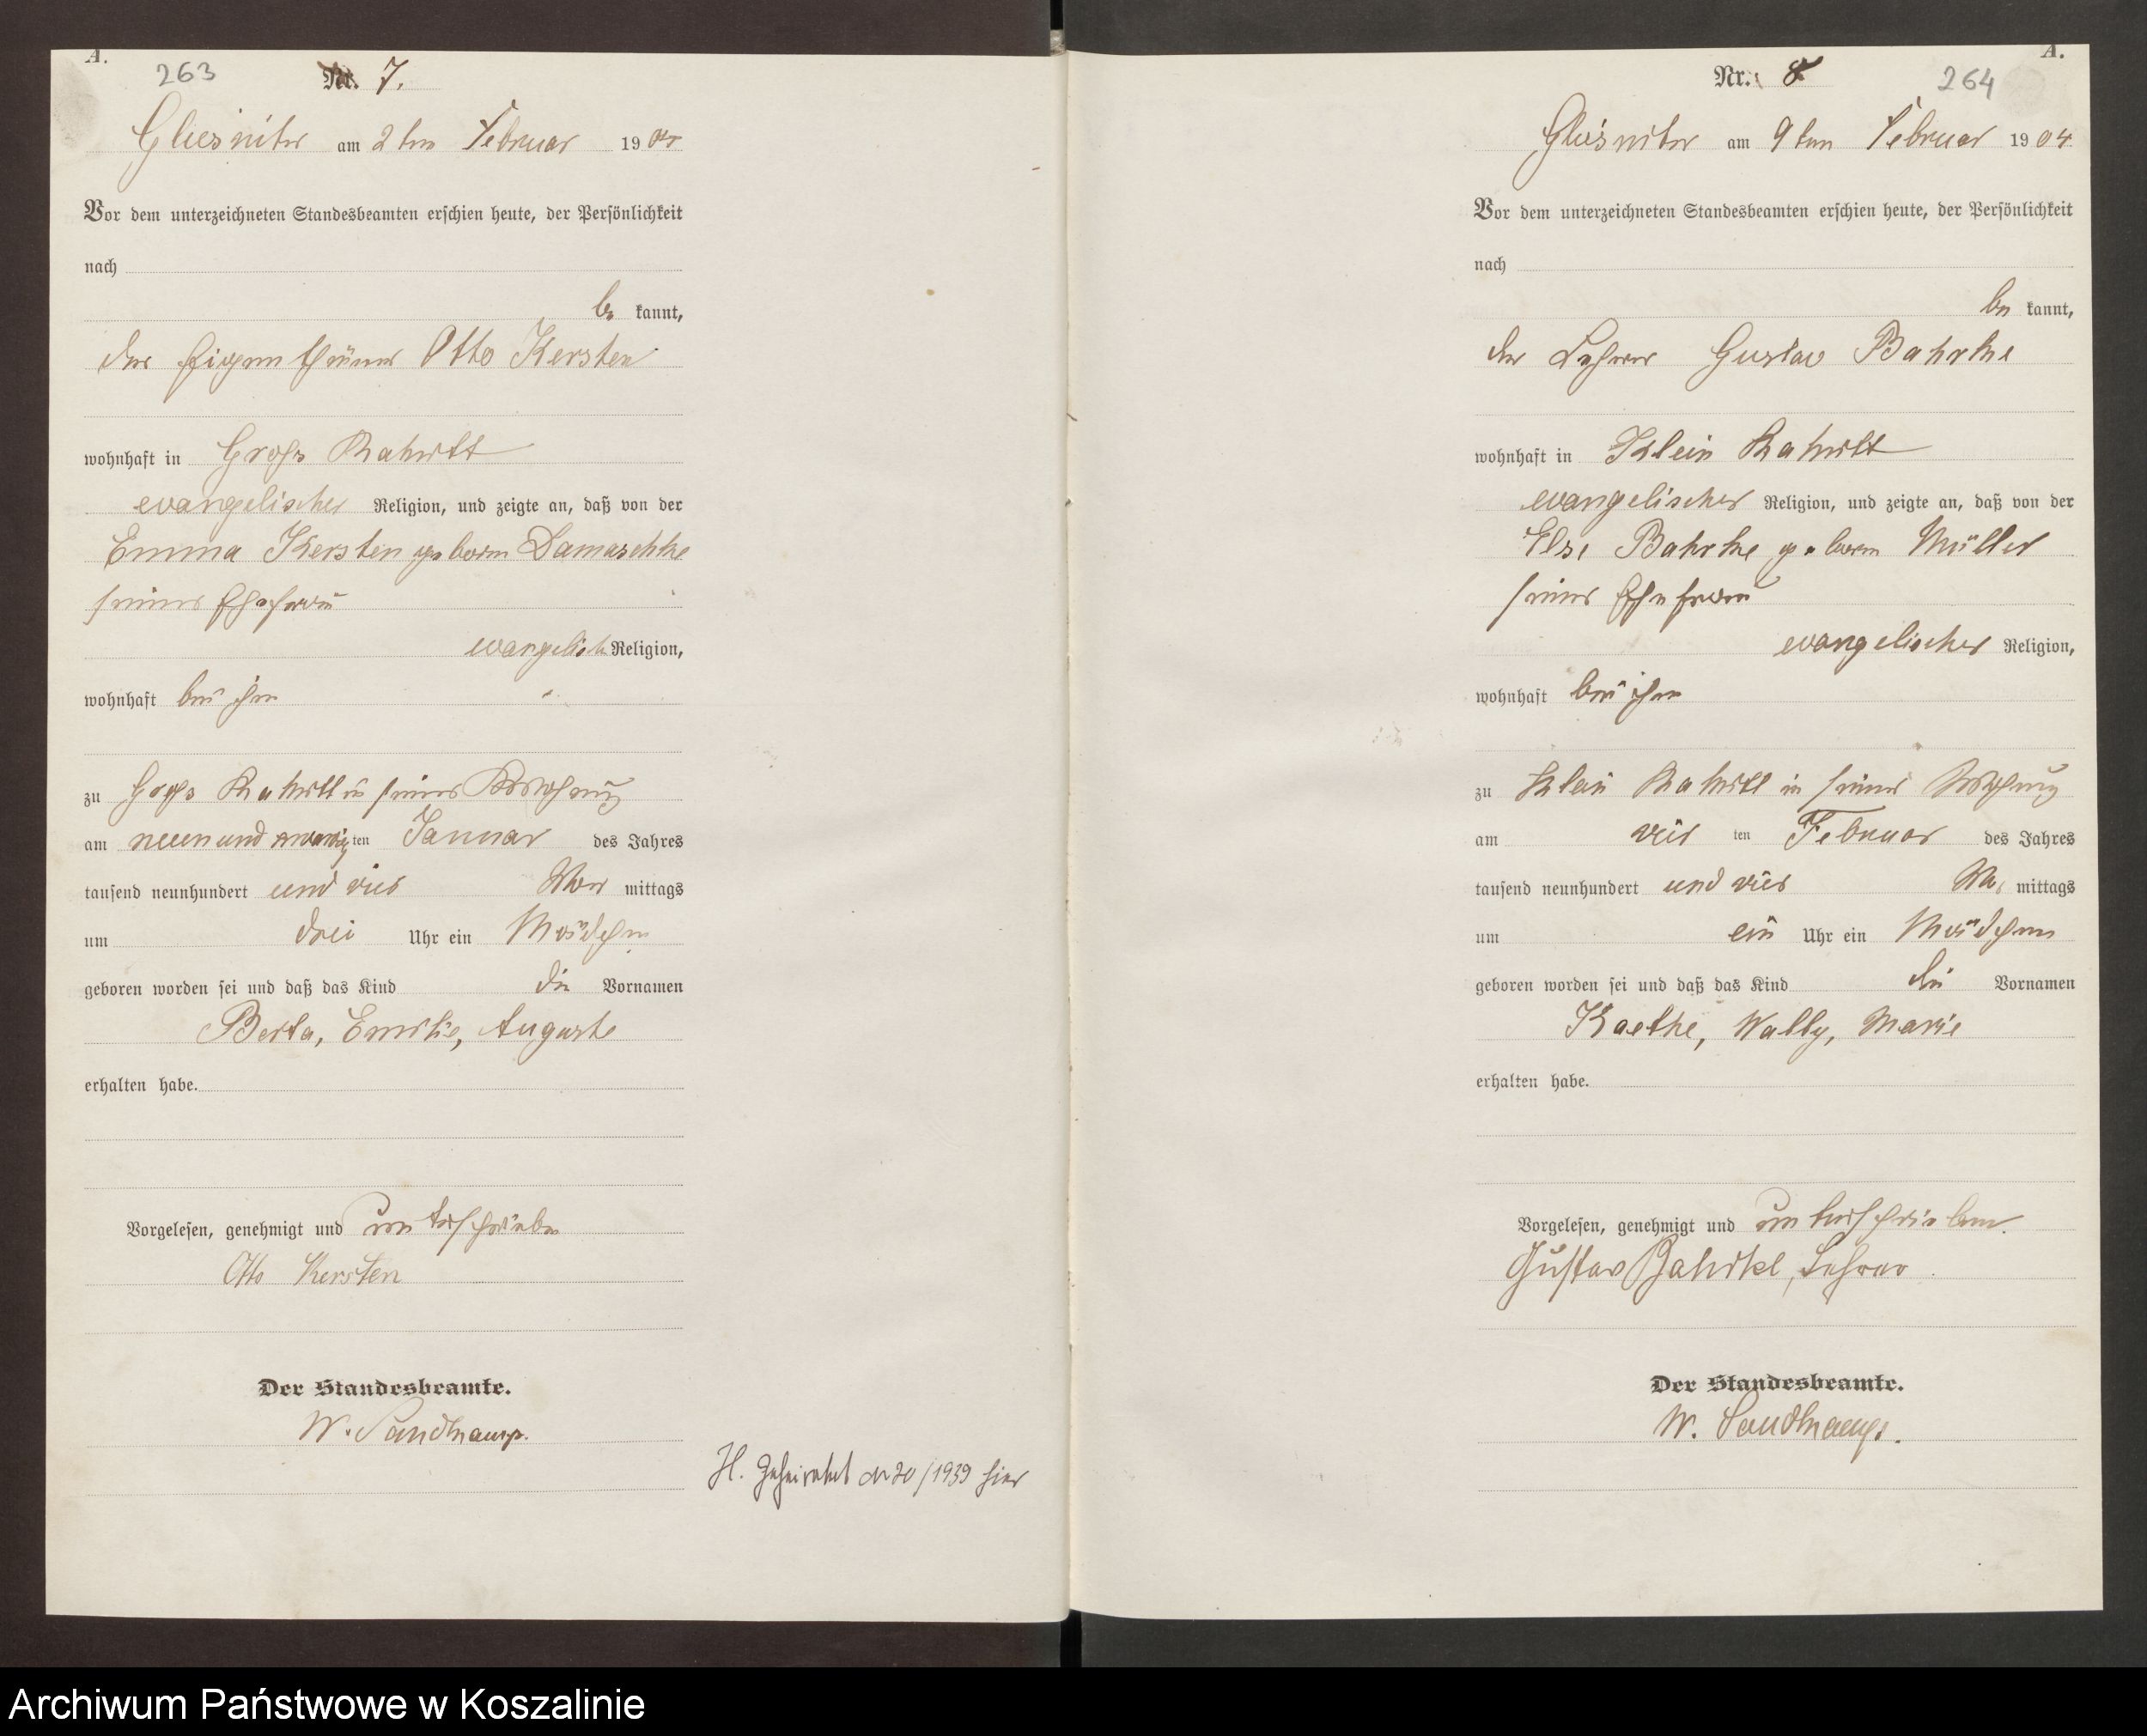 A.
263
Nr. 7.
Gliesnitz am 2ten Februar 1904
Vor dem unterzeichneten Standesbeamten erschien heute, der Persönlichkeit
nach
be kannt,
der Eigenthümer Otto Kersten
wohnhaft in Gross Rakitt
evangelischer Religion, und zeigte an, daß von der
Emma Kersten geboren Damaschke
seiner Ehefrau
evangelisch Religion,
wohnhaft bei ihm
zu Gross Rakitt in seiner Wohnung
am neunundzwanzig ten Januar des Jahres
tausend neunhundert und vier Vor mittags
um drei Uhr ein Mädchen
geboren worden sei und daß das Kind die Vornamen
Berta, Emilie, Auguste
erhalten habe.
Vorgelesen, genehmigt und unterschrieben
Otto Kersten
Der Standesbeamte.
W. Sandkamp.
H. Geheiratet Nr 20/1939 hier
A.
Nr. 8
264
Gliesnitz am 9ten Februar 1904
Vor dem unterzeichneten Standesbeamten erschien heute, der Persönlichkeit
nach
be kannt,
der Lehrer Gustav Bahrke
wohnhaft in Klein Rakitt
evangelischer Religion, und zeigte an, daß von der
Else Bahrke geboren Müller
seiner Ehefrau
evangelischer Religion,
wohnhaft bei ihm
zu Klein Rakitt in seiner Wohnung
am vier ten Februar des Jahres
tausend neunhundert und vier mittags
um ein Uhr ein Mädchen
geboren worden sei und daß das Kind die Vornamen
Kaethe, Wally, Marie
erhalten habe.
Vorgelesen, genehmigt und unterschrieben.
Gustav Bahrke, Lehrer.
Der Standesbeamte.
W. Sandkamp.
Archiwum Państwowe w Koszalinie